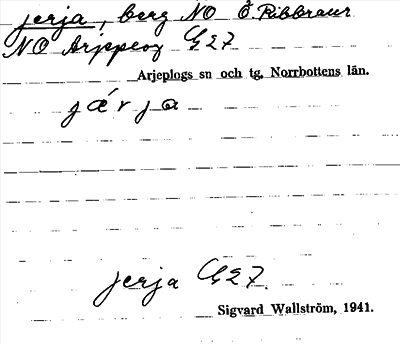 jerja, berg NO Ö. Ribbraur
NO Arjeplog G27
Arjeplogs sn och tg, Norrbottens län.
járja
jerja G27.
Sigvard Wallström, 1941.